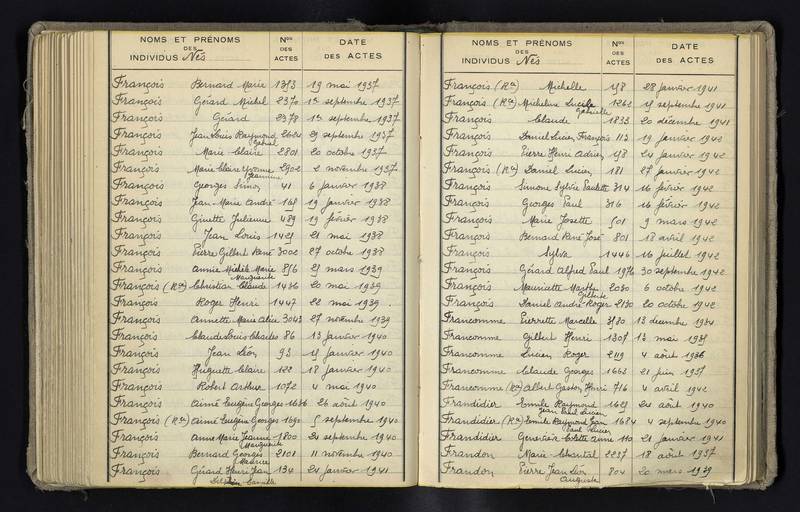 NOMS ET PRÉNOMS
DES
INDIVIDUS Nés
Nos
DES
ACTES
DATE
DES ACTES
François Bernard Marie 19 mai 1937
François Gérard Michel 2370 1er septembre 1937
François Gérard 2378 1er septembre 1937
François Jean Louis Raymond septembre 1937
François Marie Claire 2801 20 octobre 1937
François Marie Claire Yvonne 2902 2 novembre 1937
François Georges Simon 41 6 janvier 1938
François Jean Marie André 168 19 janvier 1938
François Ginette Julienne 489 19 février 1938
François Jean Louis 1429 21 mai 1938
François Pierre Gilbert René 3002 27 octobre 1938
François Annie Michèle Marie 856 mars 1939
Marguerite
François (Rle) Christian Claude 1436 20 mai 1939
François Roger Henri 1447 22 mai 1939
François Annette Marie Alice 3043 27 novembre 1939
François Claude Louis Charles 86 13 janvier 1940
François Jean Léon 93 janvier 1940
François Huguette Claire 122 18 janvier 1940
François Robert Arthur 1072 4 mai 1940
François Aimé Eugène Georges 1686 26 août 1940
François (Rle) Aimé Eugène Georges 1690 5 septembre 1940
François Anne Marie Jeanne 1800 24 septembre 1940
Marguerite
François Bernard Georges 2101 11 novembre 1940
Maurice
François Gérard Henri Jean 134 24 janvier 1941
NOMS ET PRÉNOMS
DES
INDIVIDUS Nés
Nos
DES
ACTES
DATE
DES ACTES
François (Rle) Michelle 158 28 janvier 1941
François (Rle) Micheline Lucile 1262 septembre 1941
Gabrielle
François Claude 1833 20 décembre 1941
François Daniel Lucien François 113 19 janvier 1942
François Pierre Henri Adrien 158 24 janvier 1942
François (Rle) Daniel Lucien 181 27 janvier 1942
François Simone Sylvie Paulette 314 16 février 1942
François Georges Paul 316 16 février 1942
François Marie Josette 501 9 mars 1942
François Bernard René José 801 18 avril 1942
François Sylva 1446 16 juillet 1942
François Gérard Alfred Paul 1976 30 septembre 1942
François Mauricette Marthe 2030 6 octobre 1942
Gilberte
François Daniel André Roger 2130 20 octobre 1942
Francomme Pierrette Marcelle 3580 13 décembre 1934
Francomme Gilbert Henri 1307 13 mai 1935
Francomme Lucien Roger 2119 4 août 1936
Francomme Claude Georges 1663 21 juin 1937
Francomme (Rle) Albert Gaston Henri 716 4 avril 1942
Frandidier Emile Raymond 1629 24 août 1940
Jean Paul Lucien
Frandidier (Rle) Emile Raymond Jean 1684 4 septembre 1940
Paul Lucien
Frandidier Geneviève Colette Anne 110 21 janvier 1941
Frandon Marie Chantal 2237 18 août 1937
Frandon Pierre Jean Léon 804 20 mars 1939
Auguste